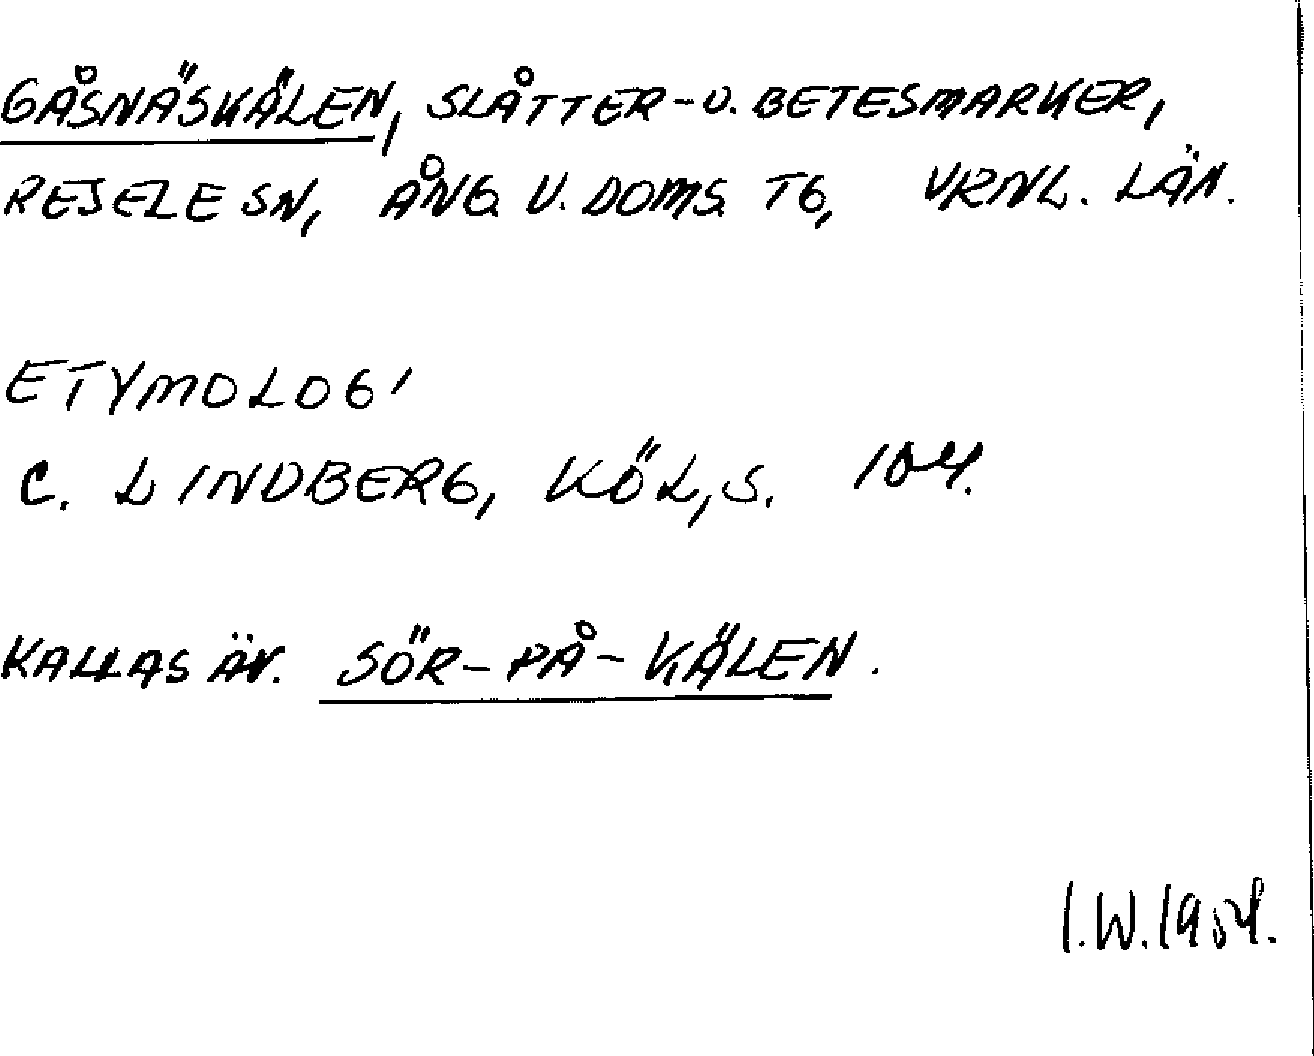 GÅSNÄSKÄLEN, SLÅTTER-U. BETESMARKER,
RESELE SN, ÅNG. V. DOMS. TG, VRNL. LÄN.
ETYMOLOGI
C. LINDBERG, KÖL, S. 104.
KALLAS ÄV. SÖR-PÅ-KÄLEN.
I.W.1954.